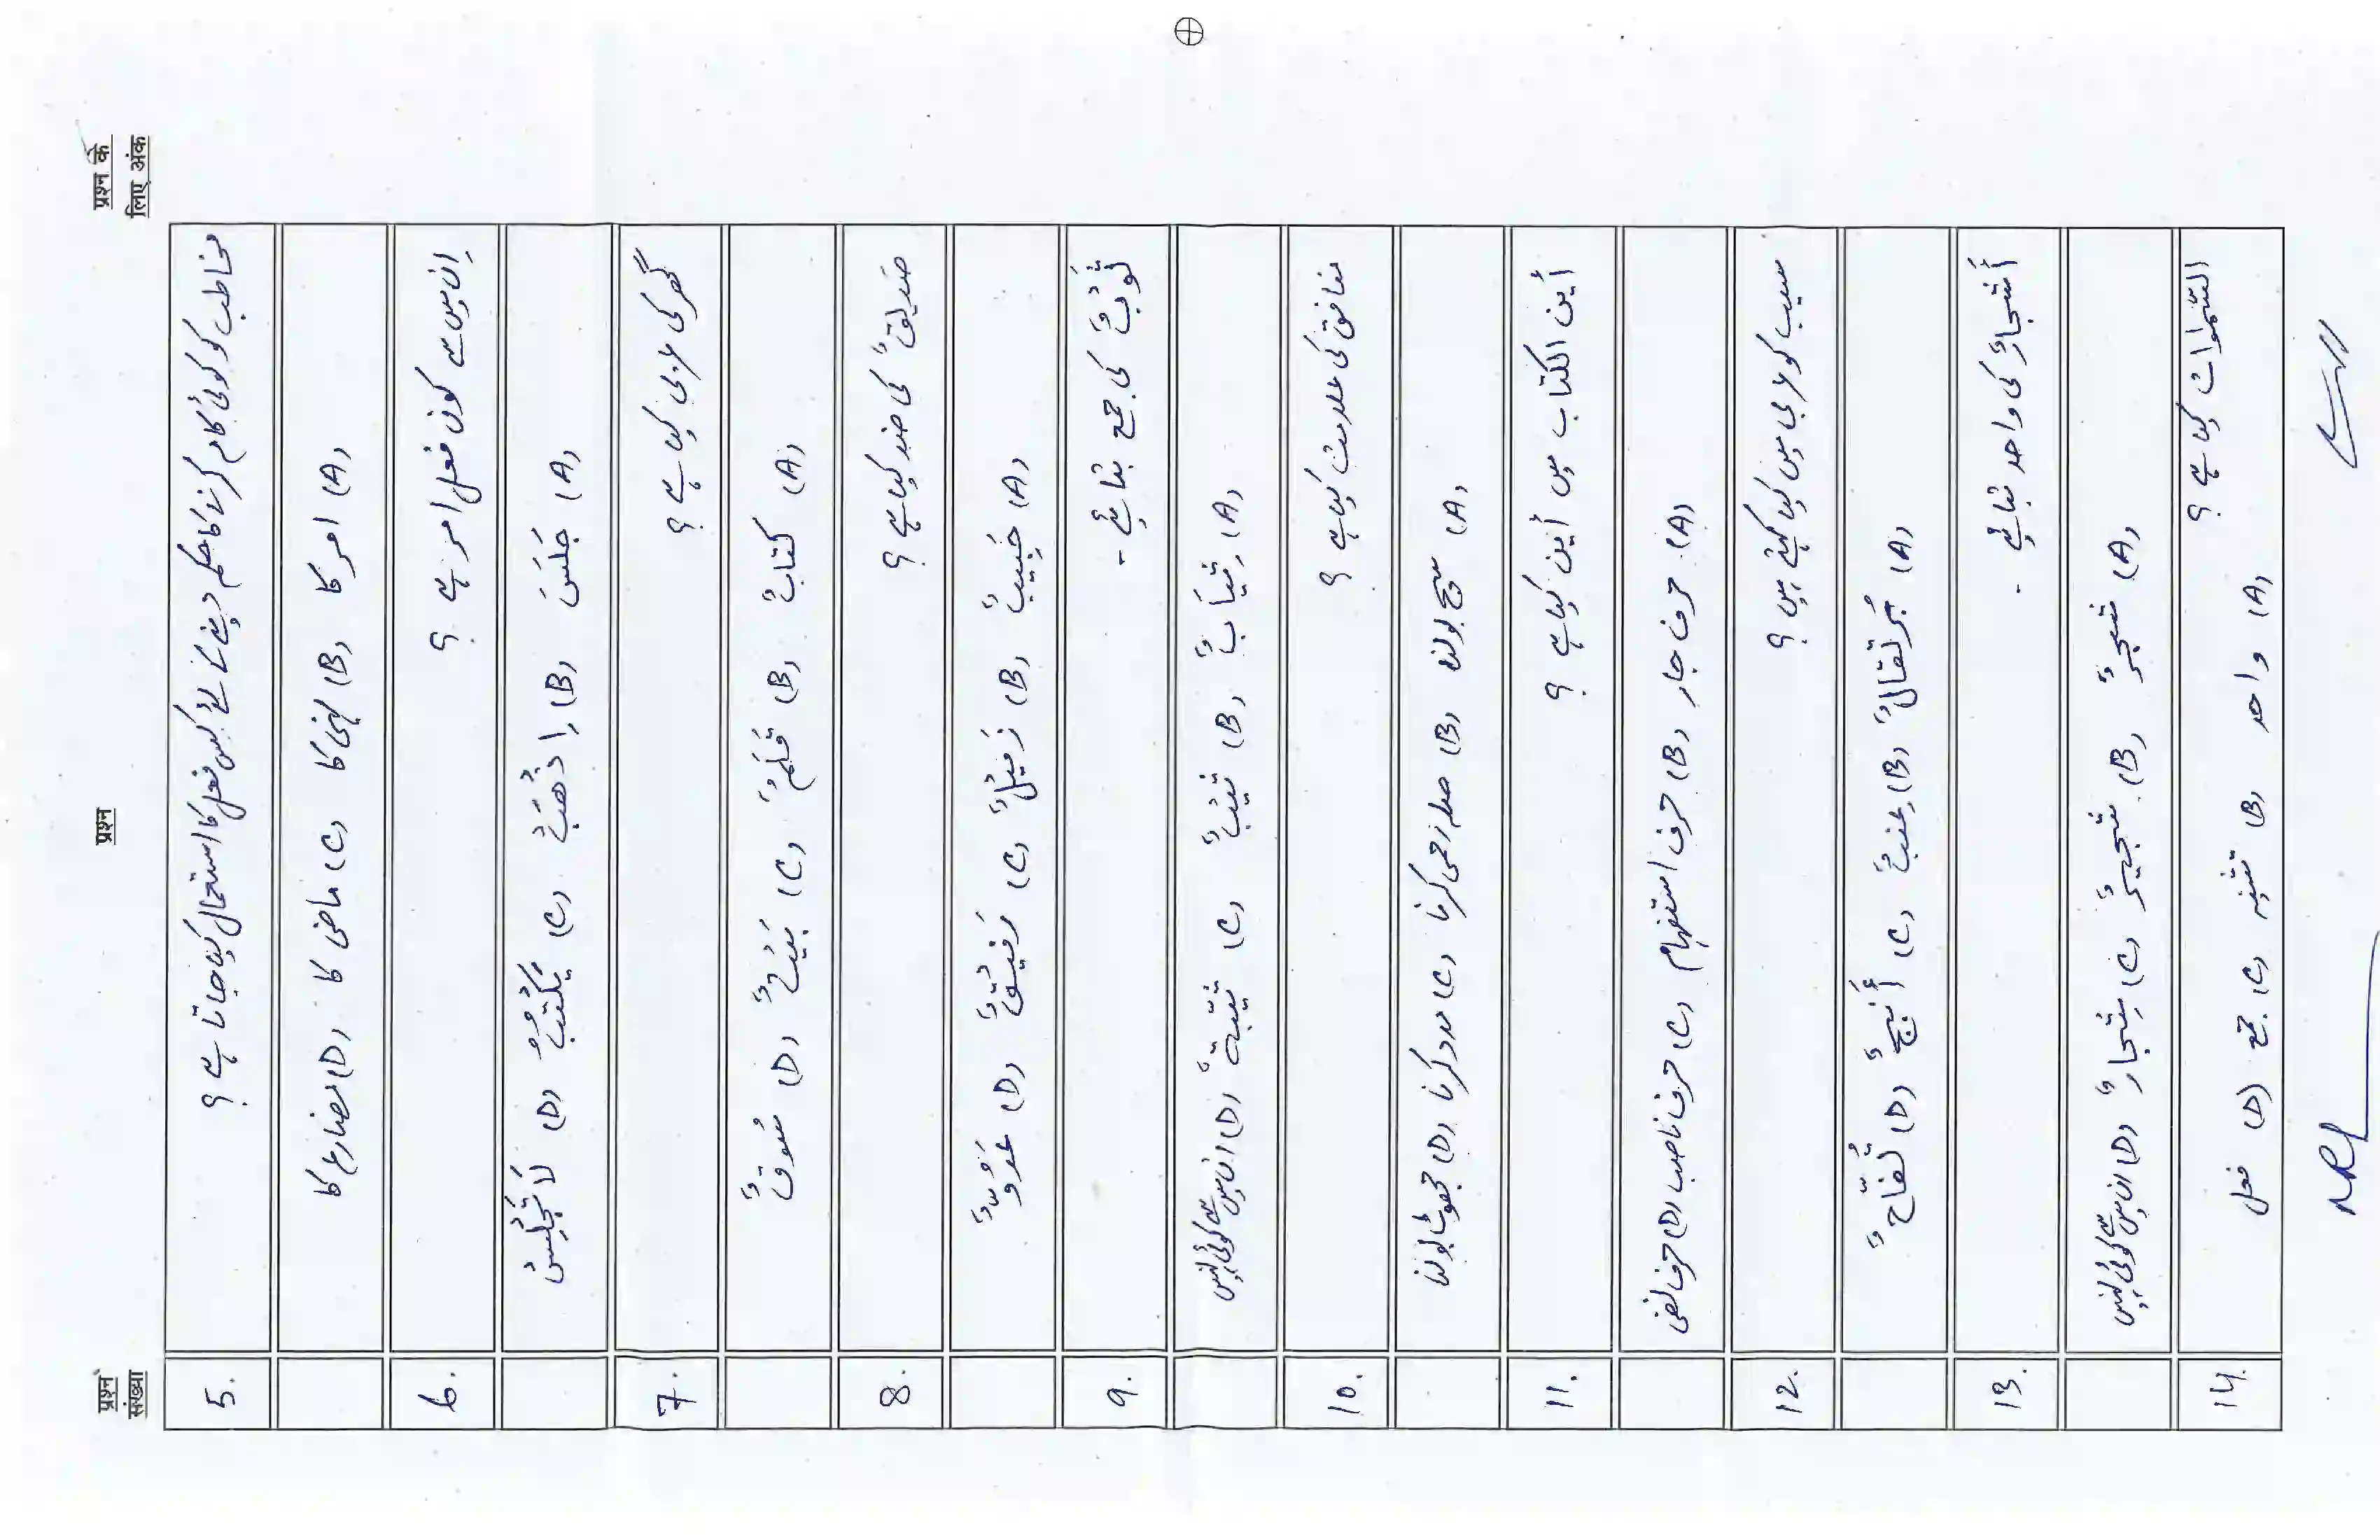 प्रश्न संख्या
प्रश्न
प्रश्न के लिए अंक
5. مخاطب کو کوئی کام کرنے کا حکم دینے کے لئے کس فعل کا استعمال کیا جاتا ہے ؟
(A) امر کا (B) نہی کا (C) ماضی کا (D) مضارع کا
6. اِن میں سے کون فعل امر ہے ؟
(A) جَلَسَ (B) اِذْهَبْ (C) يَكْتُبُ (D) لَا تَجْلِسْ
7. گھر کی عربی کیا ہے ؟
(A) كتابٌ (B) قَلَمٌ (C) بَيْتٌ (D) سُوقٌ
8. صَدِيقٌ کی ضد کیا ہے ؟
(A) حَبِيبٌ (B) زَمِيْلٌ (C) رَفِيْقٌ (D) عَدُوٌّ
9. ثَوْبٌ کی جمع بتائیے -
(A) ثِيَابٌ (B) ثَيْبٌ (C) ثَيِّبَةٌ (D) ان میں سے کوئی نہیں
10. منافق کی علامت کیا ہے ؟
(A) سچ بولنا (B) صلہ رحمی کرنا (C) مدد کرنا (D) جھوٹ بولنا
11. أين الكتاب میں أين کیا ہے ؟
(A) حرف جار (B) حرف استفہام (C) حرف ناصب (D) حرف نفی
12. سیب کو عربی میں کیا کہتے ہیں ؟
(A) بُرتقالٌ (B) عِنَبٌ (C) أَنْبَجٌ (D) تُفّاحٌ
13. أَشجارٌ کی واحد بتائیے -
(A) شجرٌ (B) شجيرٌ (C) شِجارٌ (D) ان میں سے کوئی نہیں
14. السّمٰوات کیا ہے ؟
(A) واحد (B) تثنیہ (C) جمع (D) فعل